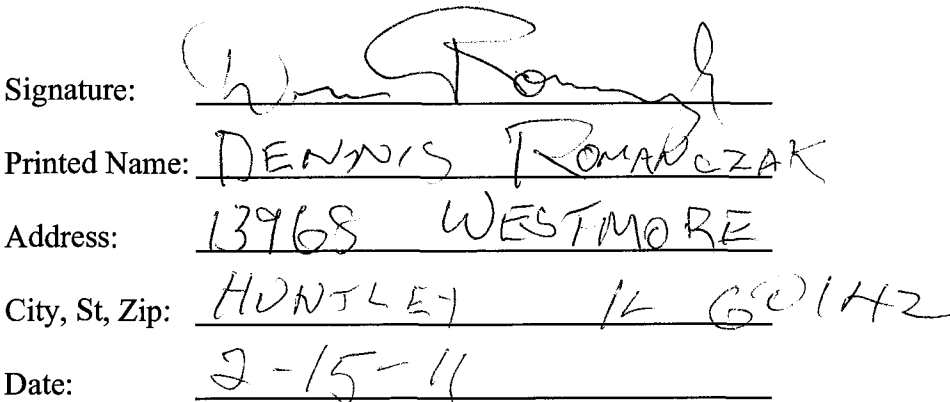 Signature:
Printed Name: DENNIS ROMANCZAK
Address: 13968 WESTMORE
City, St, Zip: HUNTLEY IL 60142
Date: 2-15-11